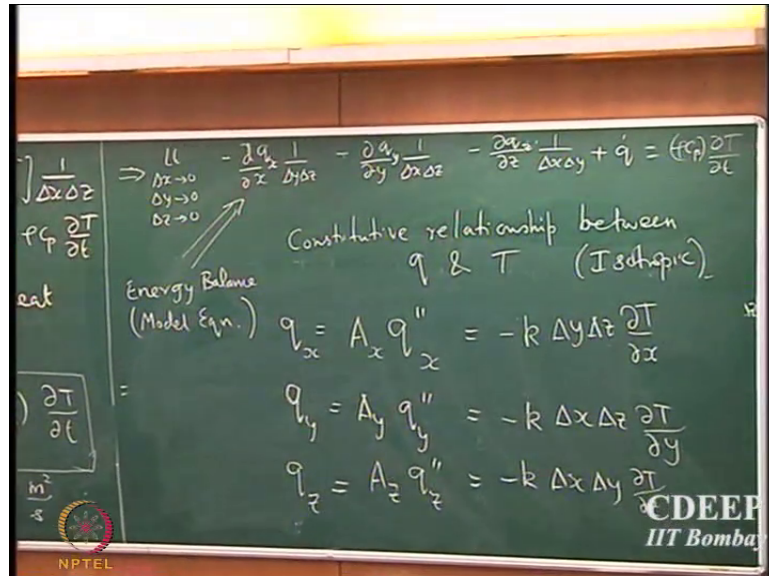 ] 1/ΔxΔz
ρCp ∂T/∂t
eat
) ∂T/∂t
m²/s
⇒ Lt Δx→0 Δy→0 Δz→0 - ∂qx/∂x 1/ΔyΔz - ∂qy/∂y 1/ΔxΔz - ∂qz/∂z 1/ΔxΔy + q̇ = (ρCp) ∂T/∂t
Energy Balance
(Model Eqn.)
=
Constitutive relationship between
q & T (Isotropic)
qx = Ax q"x = -k Δy Δz ∂T/∂x
qy = Ay q"y = -k Δx Δz ∂T/∂y
qz = Az q"z = -k Δx Δy ∂T/
NPTEL
CDEEP
IIT Bombay